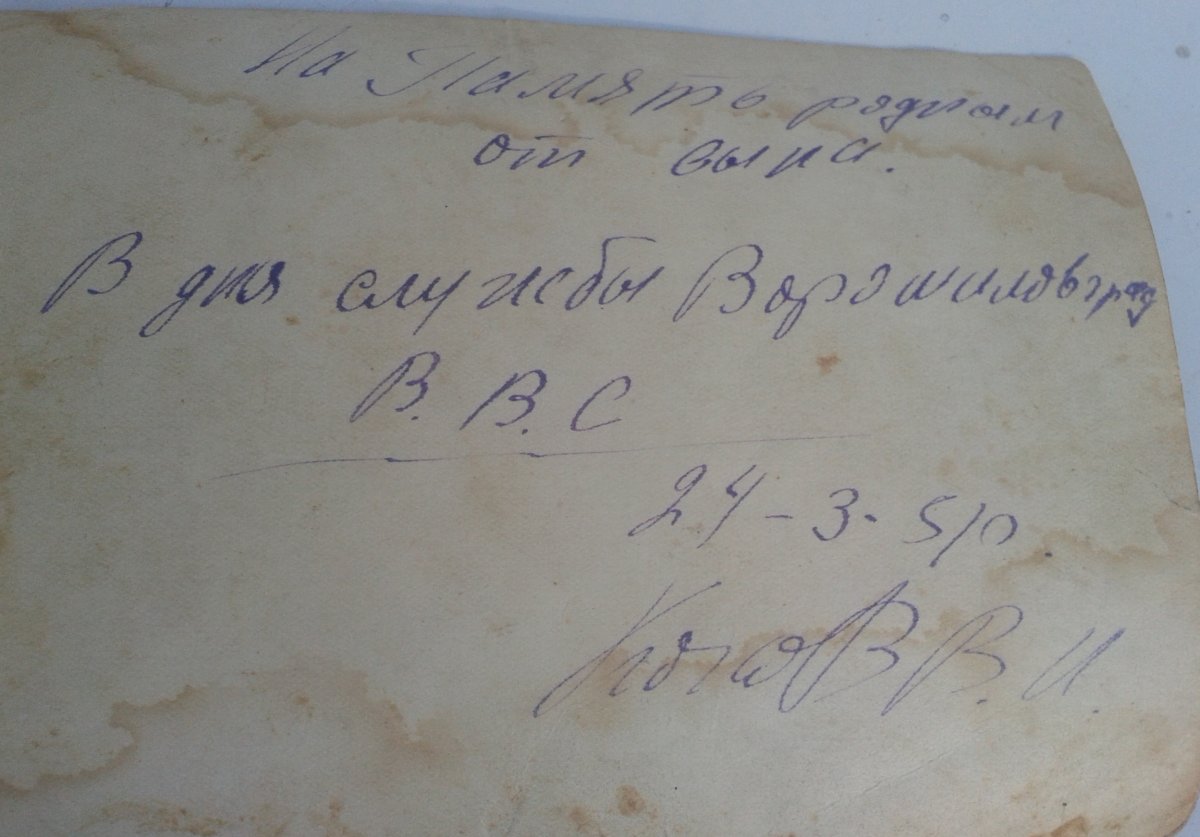 На Память родным
от сына.
В дня службы Ворошиловград
В. В. С
24-3-50
В. И.